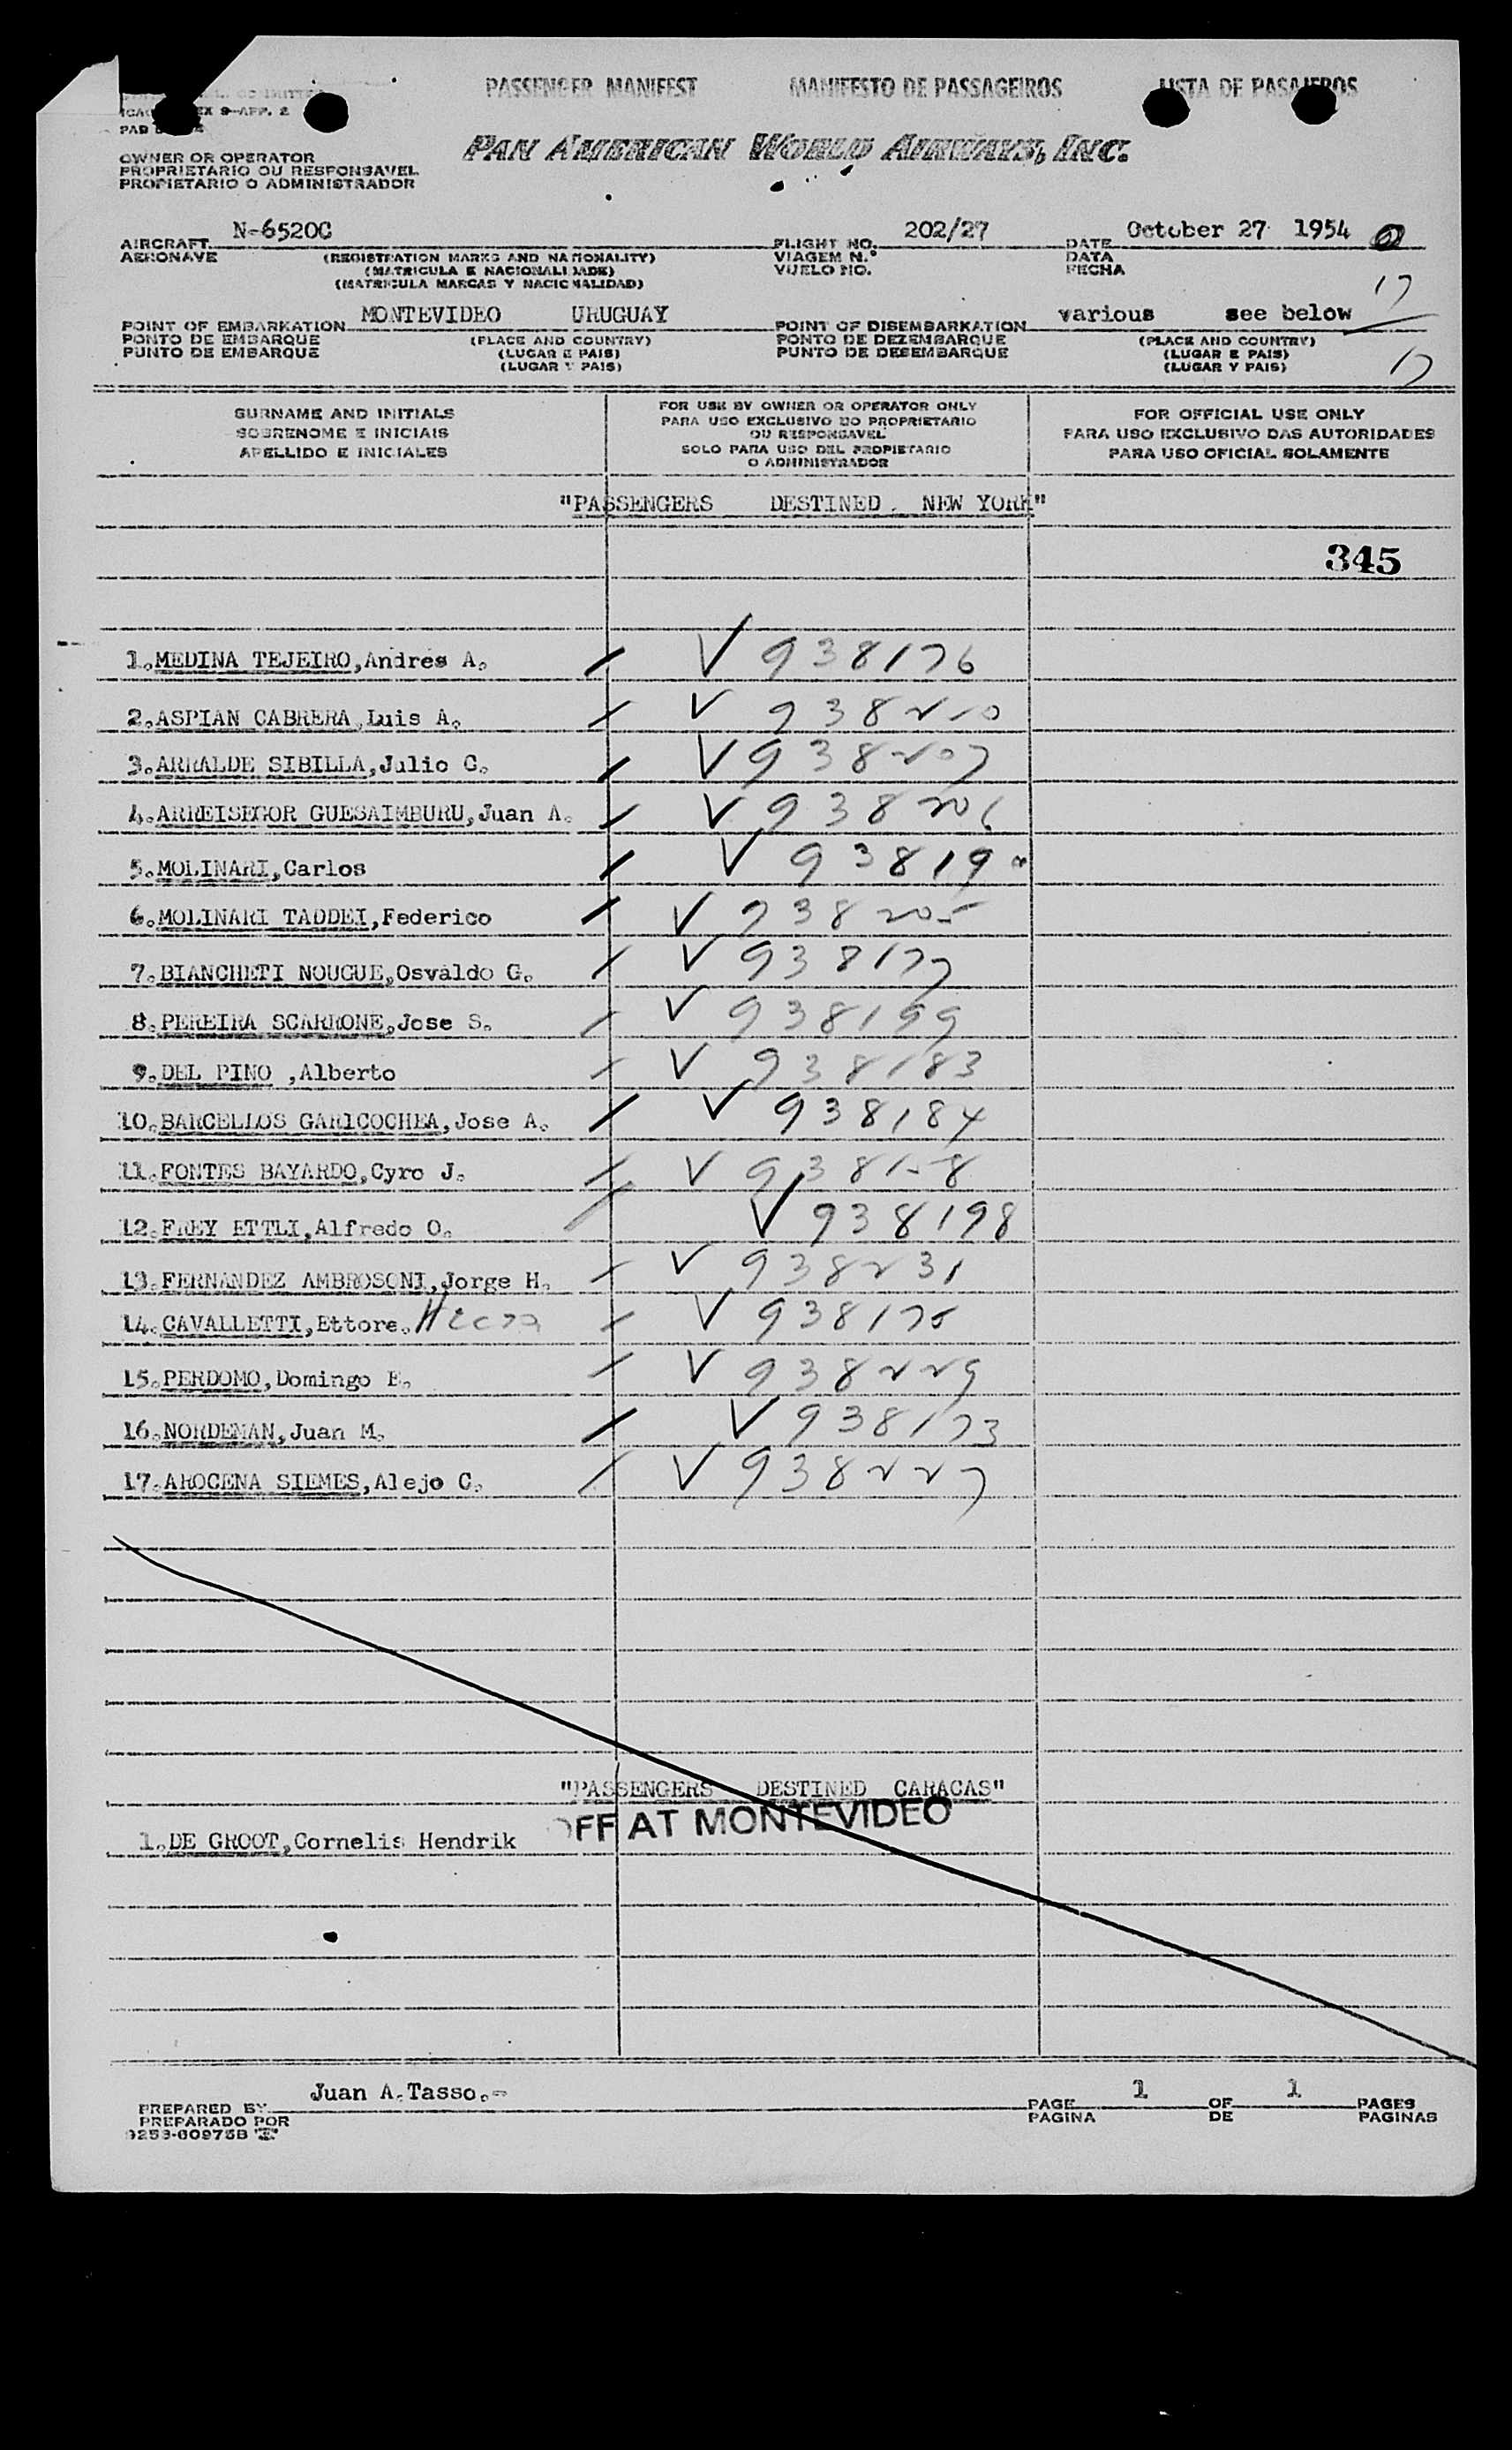 PASSENGER MANIFEST MANIFESTO DE PASSAGEIROS LISTA DE PASAJEROS
9-APP. 2
PAN AMERICAN WORLD AIRWAYS, INC.
OWNER OR OPERATOR
PROPRIETARIO OU RESPONSAVEL
PROPIETARIO O ADMINISTRADOR
AIRCRAFT N-6520C FLIGHT NO. 202/27 DATE October 27 1954
AERONAVE (REGISTRATION MARKS AND NATIONALITY) VIAGEM N.º DATA
(MATRICULA E NACIONALIDADE) VUELO NO. FECHA
(MATRICULA MARCAS Y NACIONALIDAD)
17
POINT OF EMBARKATION MONTEVIDEO URUGUAY POINT OF DISEMBARKATION various see below
PONTO DE EMBARQUE (PLACE AND COUNTRY) PONTO DE DEZEMBARQUE (PLACE AND COUNTRY)
PUNTO DE EMBARQUE (LUGAR E PAIS) PUNTO DE DESEMBARQUE (LUGAR E PAIS)
(LUGAR Y PAIS) (LUGAR Y PAIS)
17
SURNAME AND INITIALS
SOBRENOME E INICIAIS
APELLIDO E INICIALES
FOR USE BY OWNER OR OPERATOR ONLY
PARA USO EXCLUSIVO DO PROPRIETARIO
OU RESPONSAVEL
SOLO PARA USO DEL PROPIETARIO
O ADMINISTRADOR
FOR OFFICIAL USE ONLY
PARA USO EXCLUSIVO DAS AUTORIDADES
PARA USO OFICIAL SOLAMENTE
"PASSENGERS DESTINED NEW YORK"
345
1.MEDINA TEJEIRO,Andres A. / √ 938176
2.ASPIAN CABRERA,Luis A. / √ 938210
3.ARRALDE SIBILLA,Julio C. / √ 938207
4.ARREISEGOR GUESAIMBURU,Juan A. / √ 938206
5.MOLINARI,Carlos / √ 93819
6.MOLINARI TADDEI,Federico / √ 938205
7.BIANCHETI NOUGUE,Osvaldo G. / √ 938177
8.PEREIRA SCARRONE,Jose S. / √ 938199
9.DEL PINO ,Alberto / √ 938183
10.BARCELLOS GARICOCHEA,Jose A. / √ 938184
11.FONTES BAYARDO,Cyro J. / √ 938158
12.FREY ETTLI,Alfredo O. / √ 938198
13.FERNANDEZ AMBROSONI,Jorge H. / √ 938231
14.CAVALLETTI,Ettore. / √ 938175
15.PERDOMO,Domingo E. / √ 938229
16.NORDEMAN,Juan M. / √ 938173
17.AROCENA SIEMES,Alejo C. / √ 938227
"PASSENGERS DESTINED CARACAS"
OFF AT MONTEVIDEO
1.DE GROOT,Cornelis Hendrik
PREPARED BY Juan A.Tasso.- PAGE 1 OF 1 PAGES
PREPARADO POR PAGINA DE PAGINAS
9253-60975B